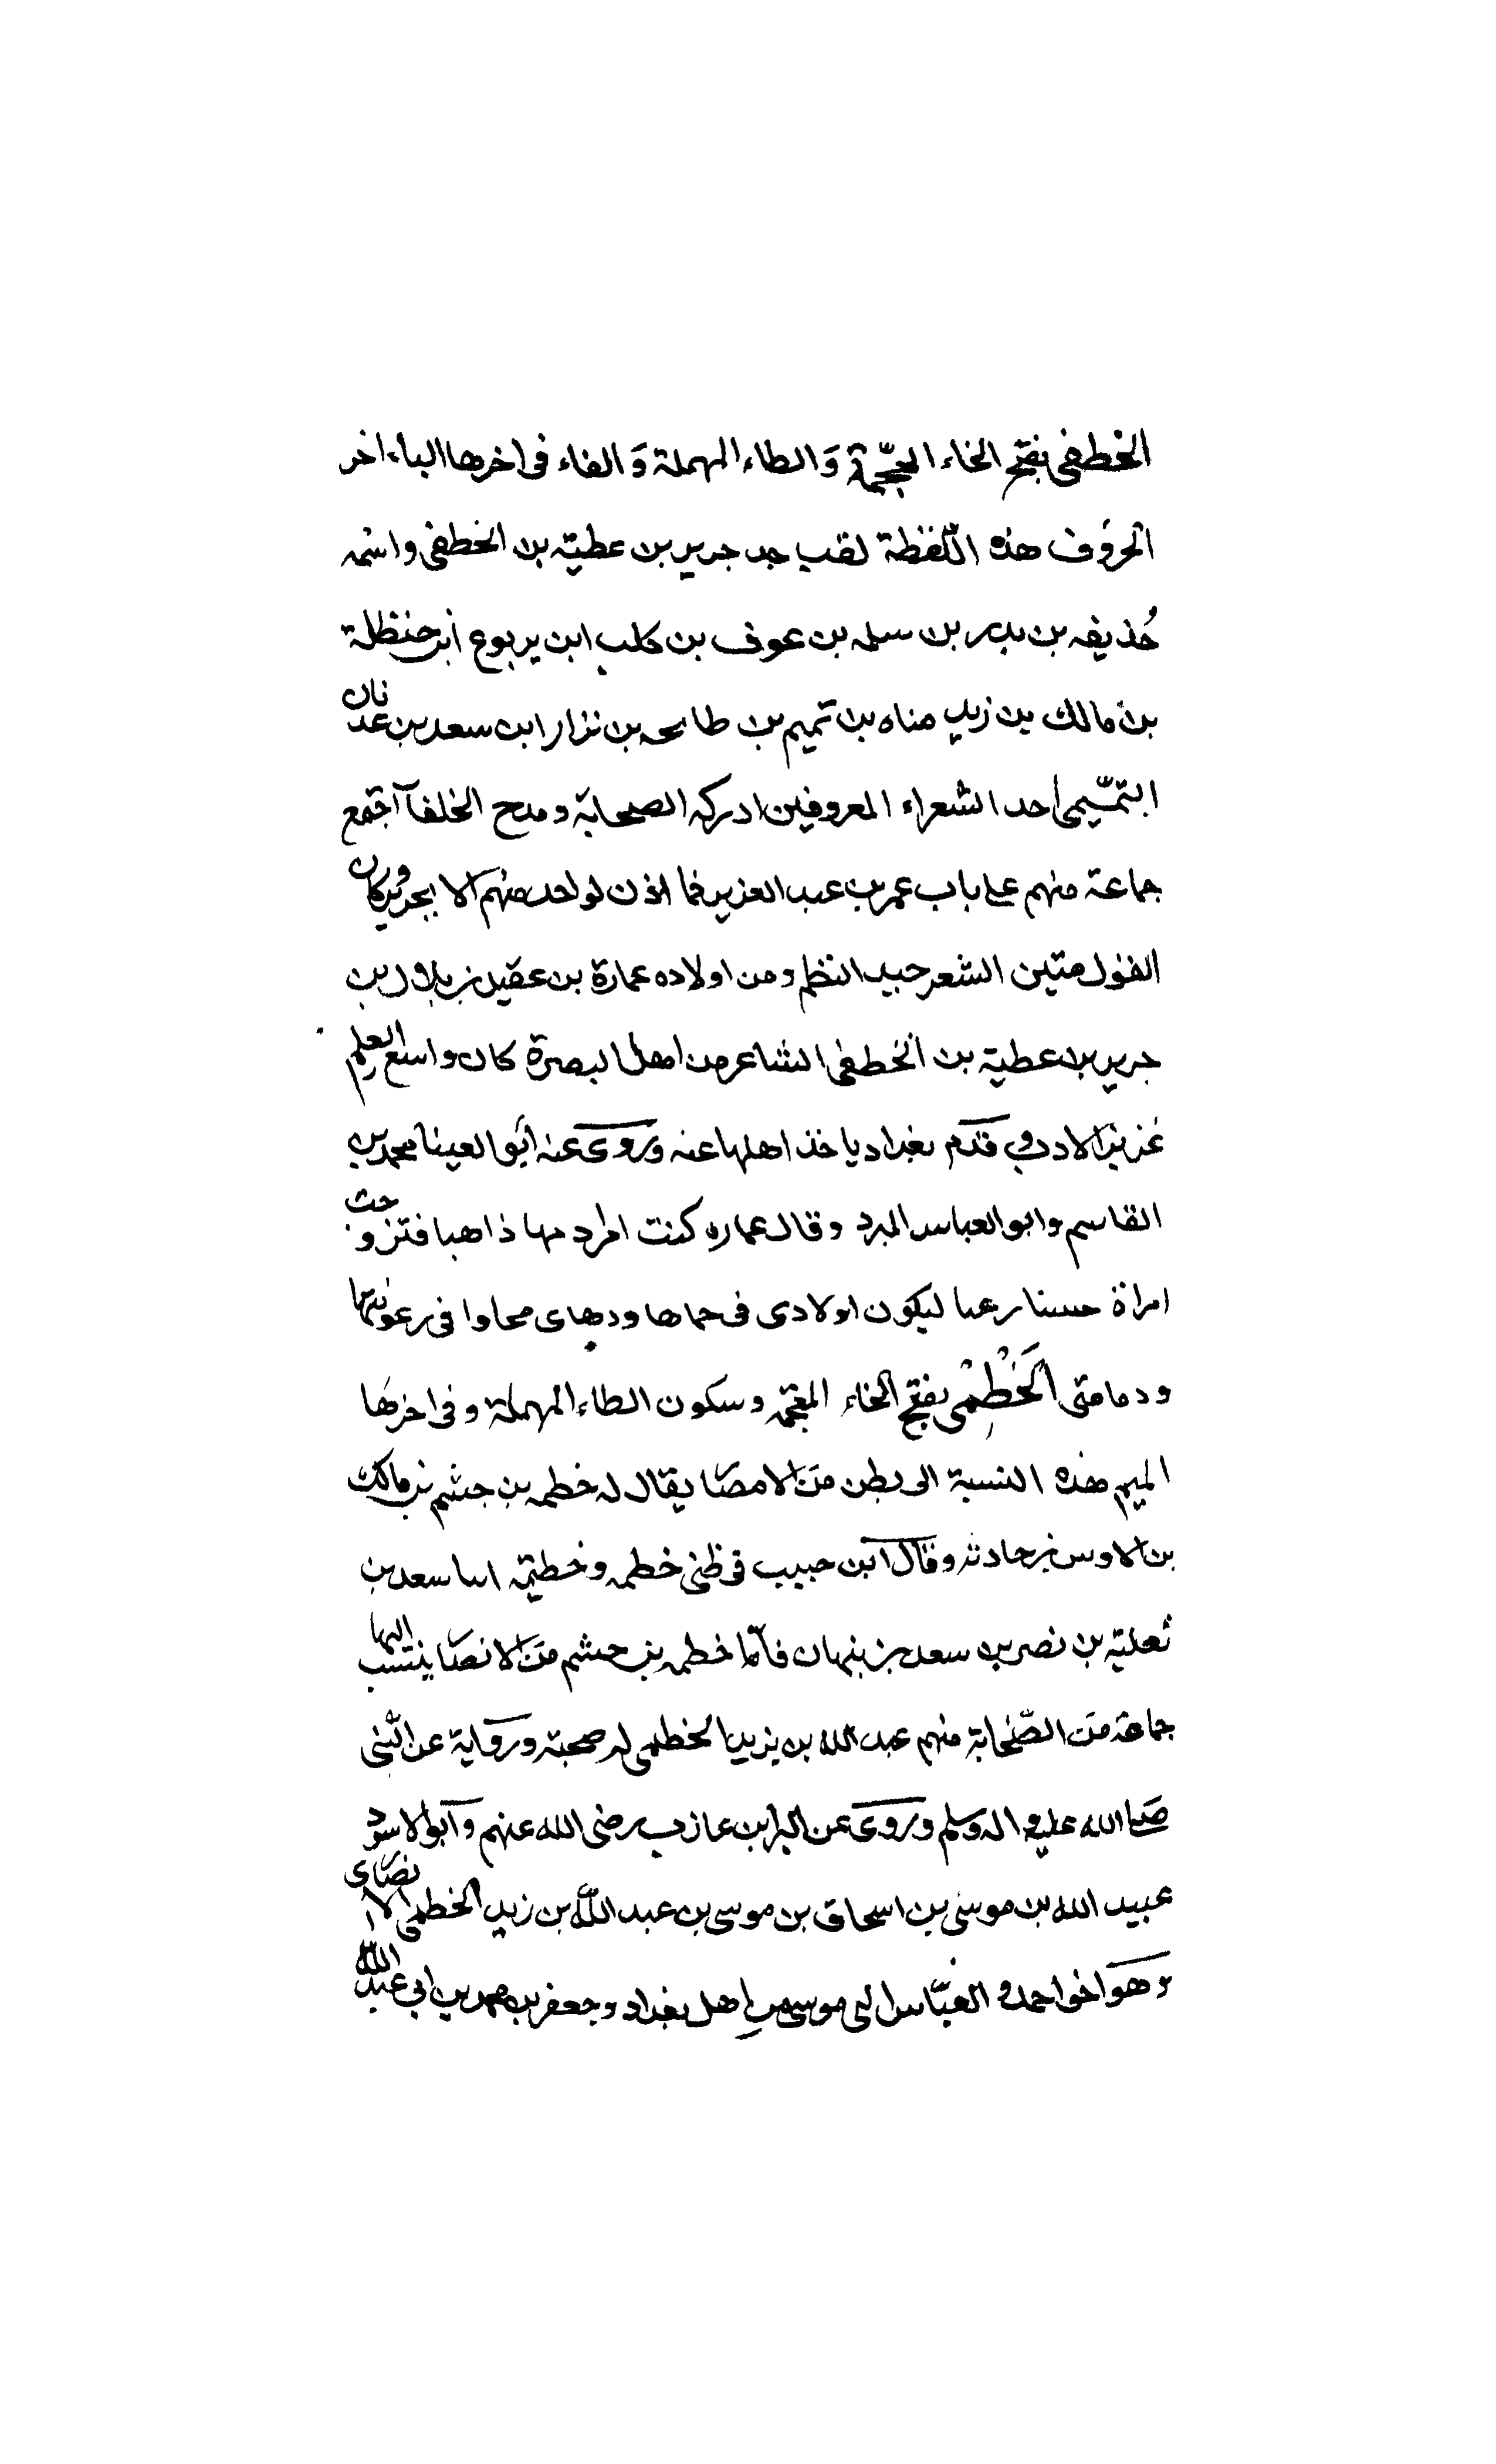 الخطفى بفتح الخاء المعجّمة وَالطاء المهملة وَالفاء فى اخرها الياء اخر
الحرُوف هذه اللّفظة لقب جد جرير بن عطيّه بن الخطفى واسمه
حُذيفه بن بدر بن سلمه بن عوف بن كلب ابن يربوع ابن حنظلة
بن مالك بن زيد مناه بن تميم بن طابحه بن نزار ابن سعد بن عدنان
التمّيمى احد الشعراء المعروفين ادركه الصحابة ومدح الخلفآ اجتمع
جماعة منهم على باب عمر بن عبد العزيز فما اذن لواحد منهم الا لجرير وكان
القول متين الشعر جيد النظم ومن اولاده عمارة بن عقيل بن بلال بن
جرير بن عطية بن الخطفى الشاعر من اهل البصرة كان واسع العلم
غزير الادب قدم بغداد ياخذ اهلها عنه وروى عنه ابو العينا محمد بن
القاسم وابو العباس المبرد وقال عماره كنت امرد مها ذاهبا فتزوجت
امراة حسنا رعنا ليكون اولادى فى جماها ودهاى فجاوا فى رعونتها
ودمامتى الَخْطِمْى بفتح الخاء المعجمه وسكون الطاء المهملة وفى اخرهَا
الميم هذه النسبة الى بطن من الامصَا يقال له خطمه بن جشم بن مالك
بن الاوس بن حارثه وقال ابن حبيب فى ظنى خطمه وخطيمه ابنا سعد بن
ثعلبة بن نصر بن سعد بن نبهان فأمّا خطمه بن جشم من الانصَا ينتسب اليها
جماعة من الصّحابة منهم عبد الله بن يزيد الخطمى له صحبة ورواية عن النّبى
صَلى الله عليه واله وسلم وروى عن البرا بن عازب رضى الله عنهم وابو الاسود
عبيد الله بن موسى بن اسحاق بن موسى بن عبد اللّه بن زيد الخطمى الانصَارى
وهو اخو احمد والعبّاس ابنى موسى من اهل بغداد وجعفر بن محمد بن ابي عبد اللّه